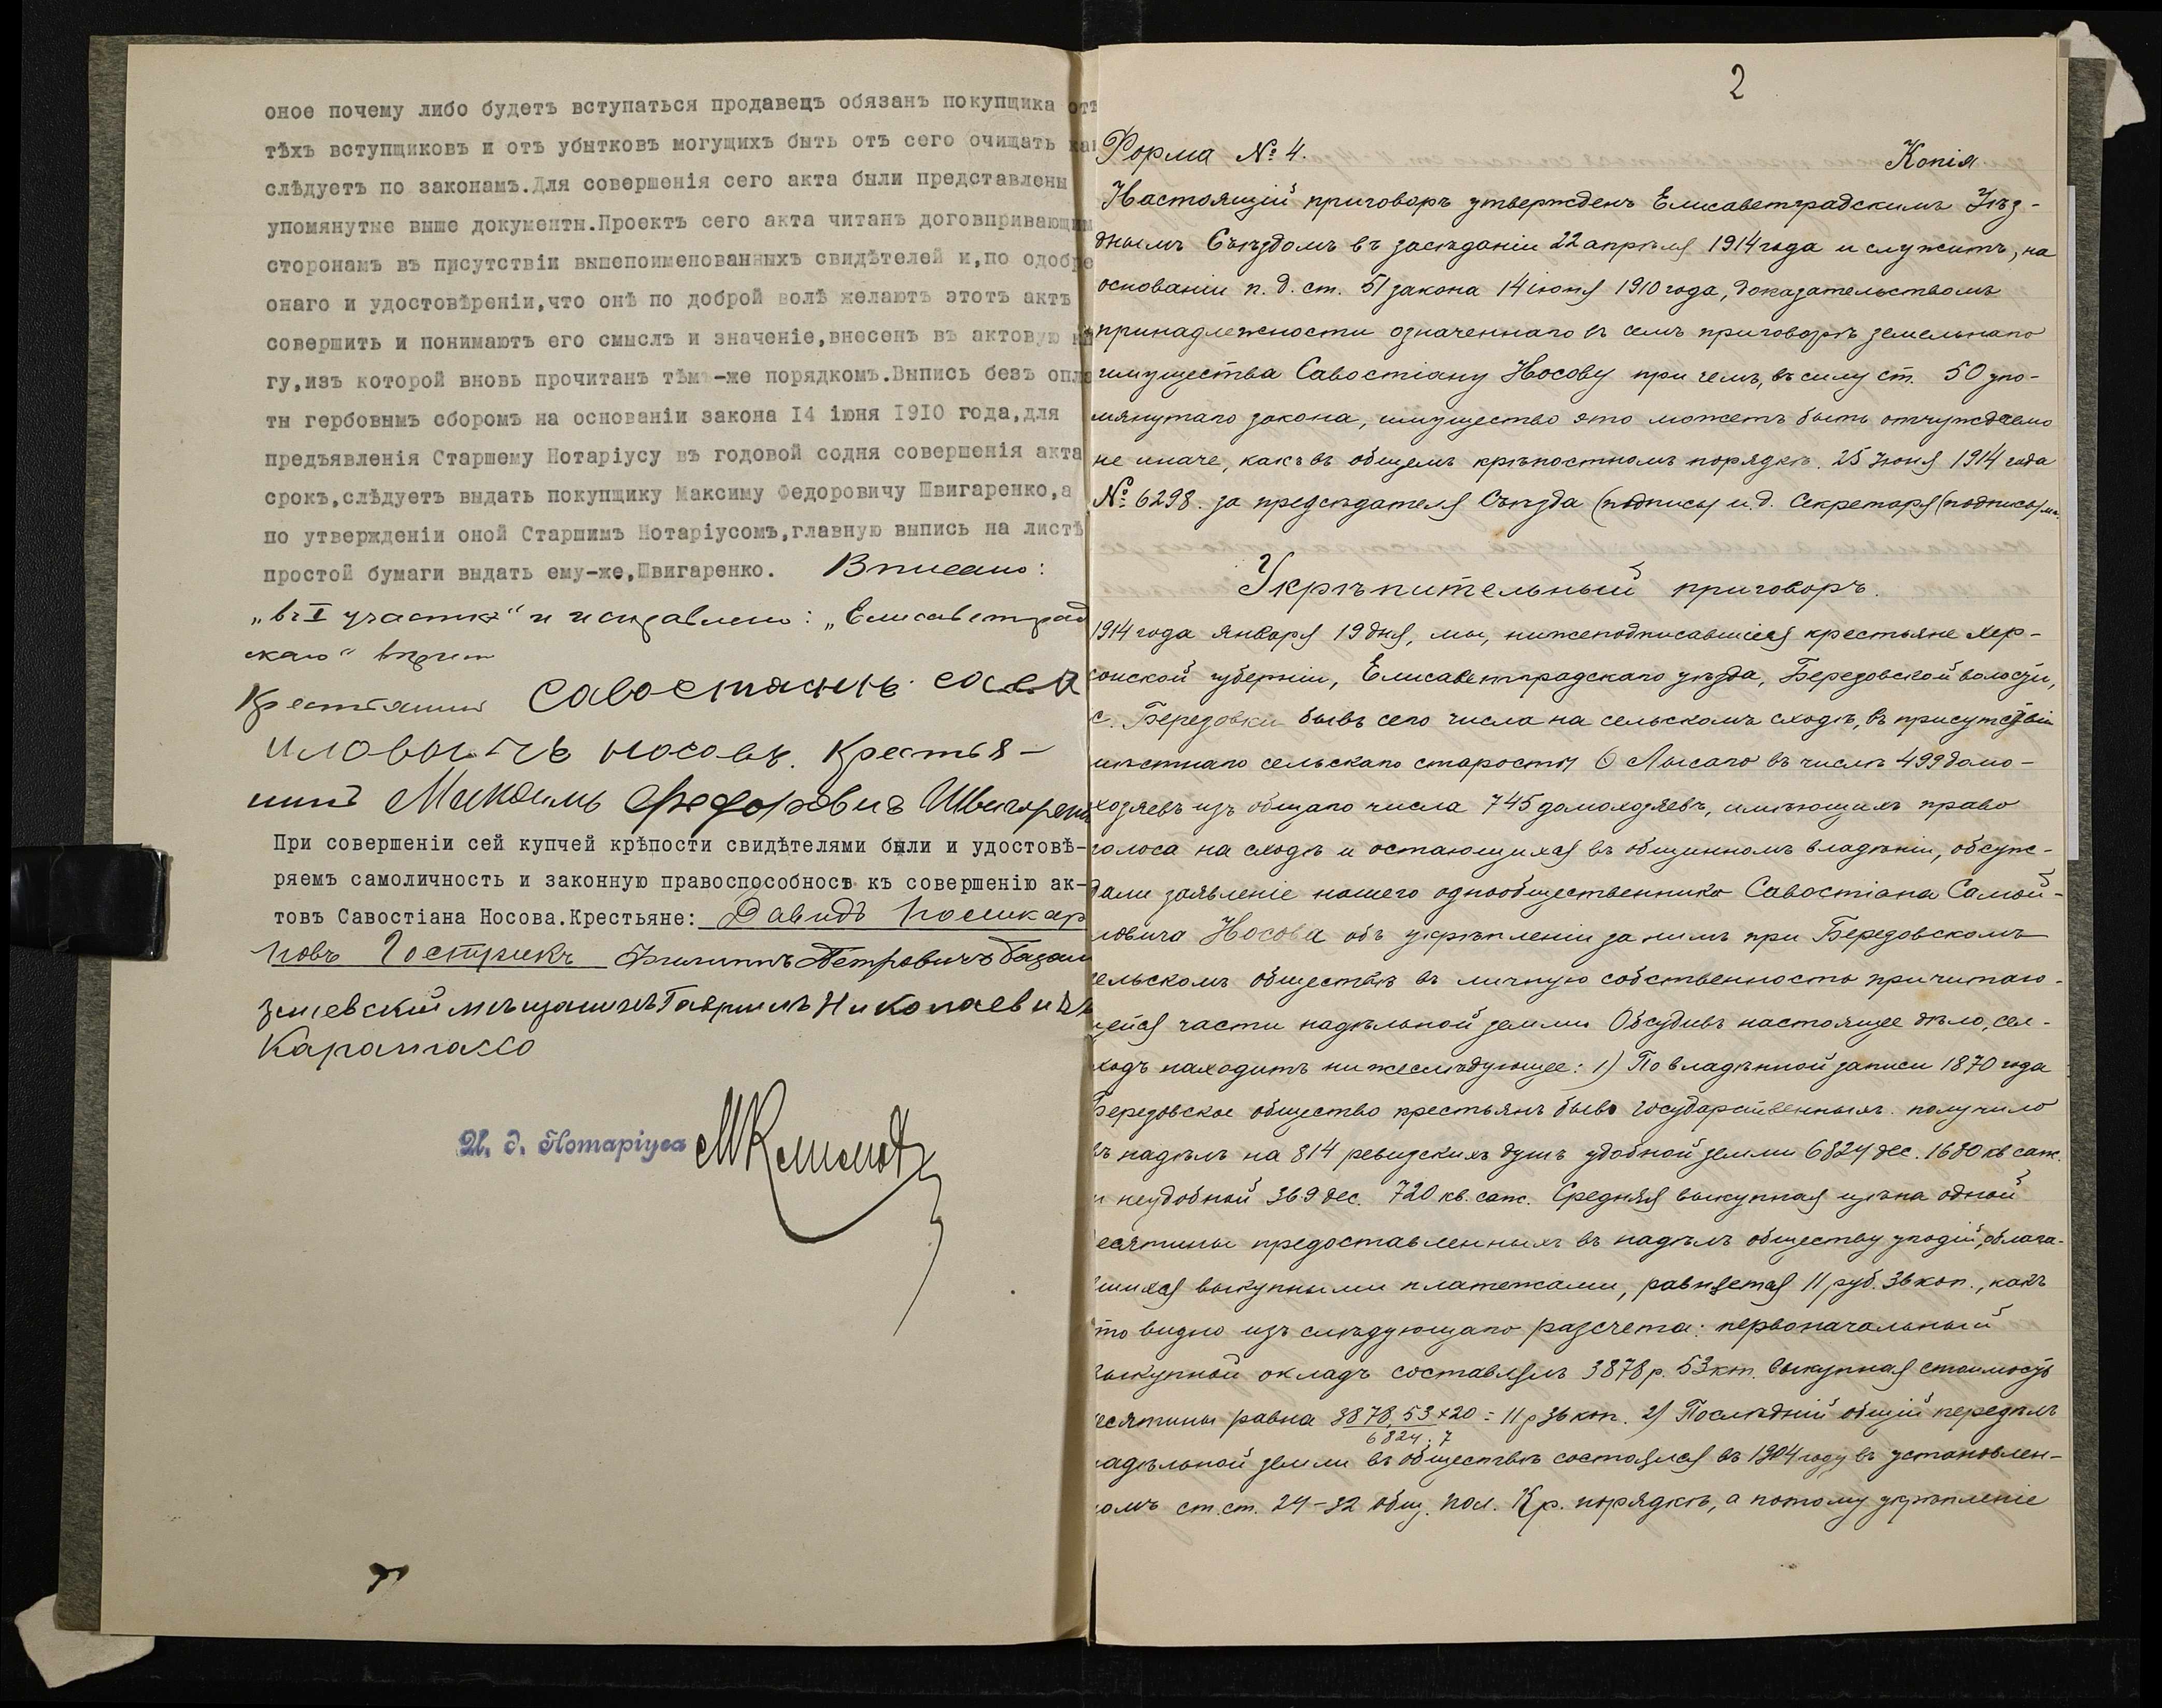 оное почему либо будетъ вступаться продавецъ обязанъ покупщика отъ
тѣхъ вступщиковъ и отъ убытковъ могущихъ быть отъ сего очищать как
слѣдуетъ по законамъ.Для совершенія сего акта были представлены
упомянутые выше документы.Проектъ сего акта читанъ договпривающим
сторонамъ въ присутствіи вышепоименованныхъ свидѣтелей и,по одобре
онаго и удостовѣреніи,что онѣ по доброй волѣ желаютъ этотъ актъ
совершить и понимаютъ его смыслъ и значеніе,внесенъ въ актовую кн
гу,изъ которой вновь прочитанъ тѣмъ-же порядкомъ.Выпись безъ опла
ты гербовымъ сборомъ на основаніи закона 14 іюня 1910 года,для
предъявленія Старшему Нотаріусу въ годовой содня совершенія акта
срокъ,слѣдуетъ выдать покупщику Максиму Федоровичу Швигаренко,а
по утвержденіи оной Старшимъ Нотаріусомъ,главную выпись на листѣ
простой бумаги выдать ему-же,Швигаренко. Вписано:
„въ I участкѣ" и исправлено: „Елисаветград
скаго"
Крестьянинъ Савостянъ Сам
иловичъ Носовъ. Крестья-
нинъ Максимъ Федоровичъ Швигорен
При совершеніи сей купчей крѣпости свидѣтелями были и удостовѣ-
ряемъ самоличность и законную правоспособност къ совершенію ак-
товъ Савостіана Носова.Крестьяне: Давидъ Поликар
повъ Гострикъ Филиппъ Петровичъ
зміевскій мѣщанинъ Гавріилъ Николаевичъ
И. д. Нотаріуса
2
Форма № 4. Копія
Настоящій приговоръ утвержденъ Елисаветградскимъ Уѣз-
днымъ Съѣздомъ въ засѣданіи 22 апрѣля 1914 года и служитъ, на
основаніи п. д. ст. 51 закона 14 іюня 1910 года, доказательствомъ
принадлежности означеннаго въ семъ приговорѣ земельнаго
имущества Савостіану Носову при чемъ, въ силу ст. 50 упо-
мянутаго закона, имущество это можетъ быть отчуждаемо
не иначе, какъ въ общемъ крѣпостномъ порядкѣ. 25 Іюня 1914 года
№ 6298. за предсѣдателя Съѣзда (подпись) и.д. Секретаря (подпись) м.п.
Укрѣпительный приговоръ.
1914 года января 19 дня, мы, нижеподписавшіеся крестьяне Хер-
сонской губерніи, Елисаветградскаго уѣзда, Березовской волости,
с. Березовки бывъ сего числа на сельскомъ сходѣ, въ присутствіи
мѣстнаго сельскаго старосты Ѳ Лысаго въ числѣ 499 домо-
хозяевъ изъ общаго числа 745 домохозяевъ, имѣющихъ право
голоса на сходѣ и остающихся въ общинномъ владѣніи, обсуж-
дали заявленіе нашего однообщественника Савостіана Самой-
ловича Носова объ укрѣпленіи за нимъ при Березовскомъ
сельскомъ обществѣ въ личную собственность причитаю-
щейся части надѣльной земли Обсудивъ настоящее дѣло, сел.
сходъ находитъ нижеслѣдующее: 1) По владѣнной записи 1870 года
Березовское общество крестьянъ бывъ государственныхъ получило
въ надѣлъ на 814 ревизскихъ душъ удобной земли 6824 дес. 1680 кв саж.
и неудобной 369 дес. 720 кв. саж. Средняя выкупная цѣна одной
десятины предоставленныхъ въ надѣлъ обществу угодій, облага-
вшихся выкупными платежами, равняется 11 руб. 36 коп., какъ
это видно изъ слѣдующаго разсчета: первоначальный
выкупной окладъ составлялъ 3878 р. 53 коп. выкупная стоимость
десятины равна 3878,53×20 = 11 р 36 коп. 2) Послѣдній общій передѣлъ
6824,7
надѣльной земли въ обществѣ состоялся въ 1904 году въ установлен-
номъ ст.ст. 24-32 общ. пол. Кр. порядкѣ, а потому укрѣпленіе